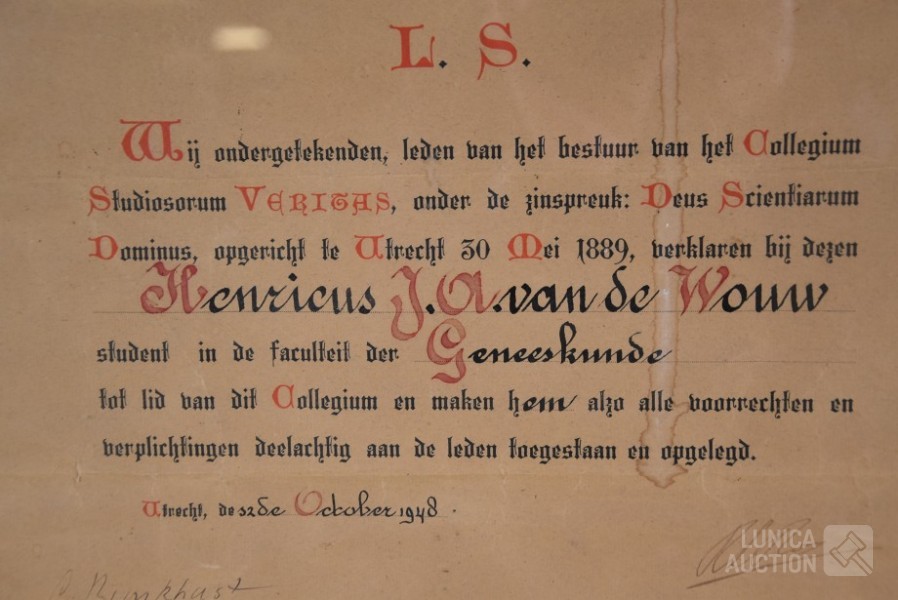 L. S.
Wij ondergetekenden, leden van het bestuur van het Collegium
Studiosorum VERITAS, onder de zinspreuk: Deus Scientiarum
Dominus, opgericht te Utrecht 30 Mei 1889, verklaren bij dezen
Henricus J.A. van de Wouw
student in de faculteit der Geneeskunde
tot lid van dit Collegium en maken hem alzo alle voorrechten en
verplichtingen deelachtig aan de leden toegestaan en opgelegd.
Utrecht, de October 1948.
LUNICA
AUCTION